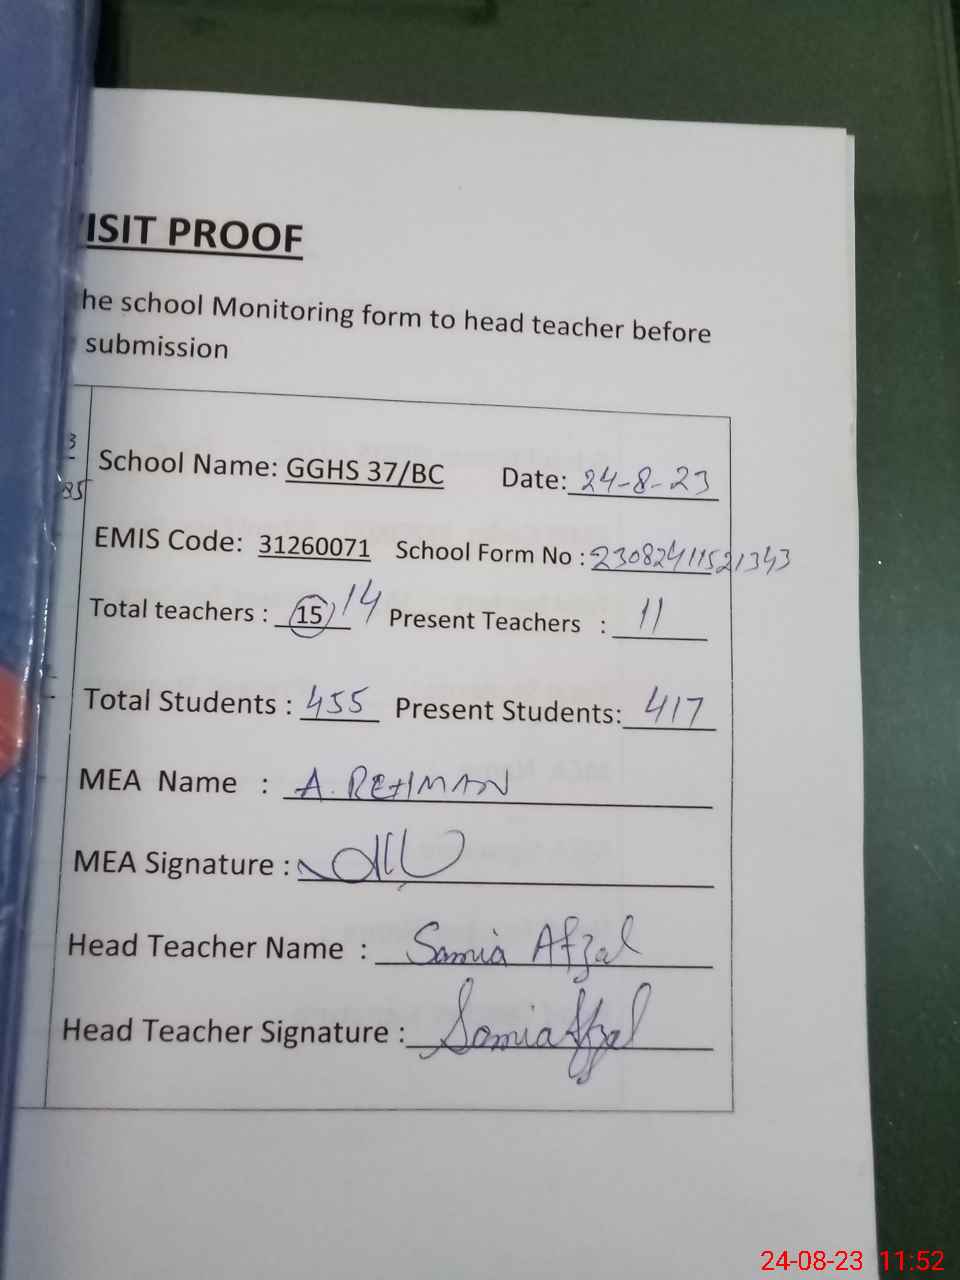 ISIT PROOF
he school Monitoring form to head teacher before
submission
School Name: GGHS 37/BC Date: 24-8-23
EMIS Code: 31260071 School Form No : 23082411521343
Total teachers : 15 14 Present Teachers : 11
Total Students : 455 Present Students: 417
MEA Name : A. REHMAN
MEA Signature :
Head Teacher Name : Samia Afzal
Head Teacher Signature : Samia Afzal
24-08-23 11:52